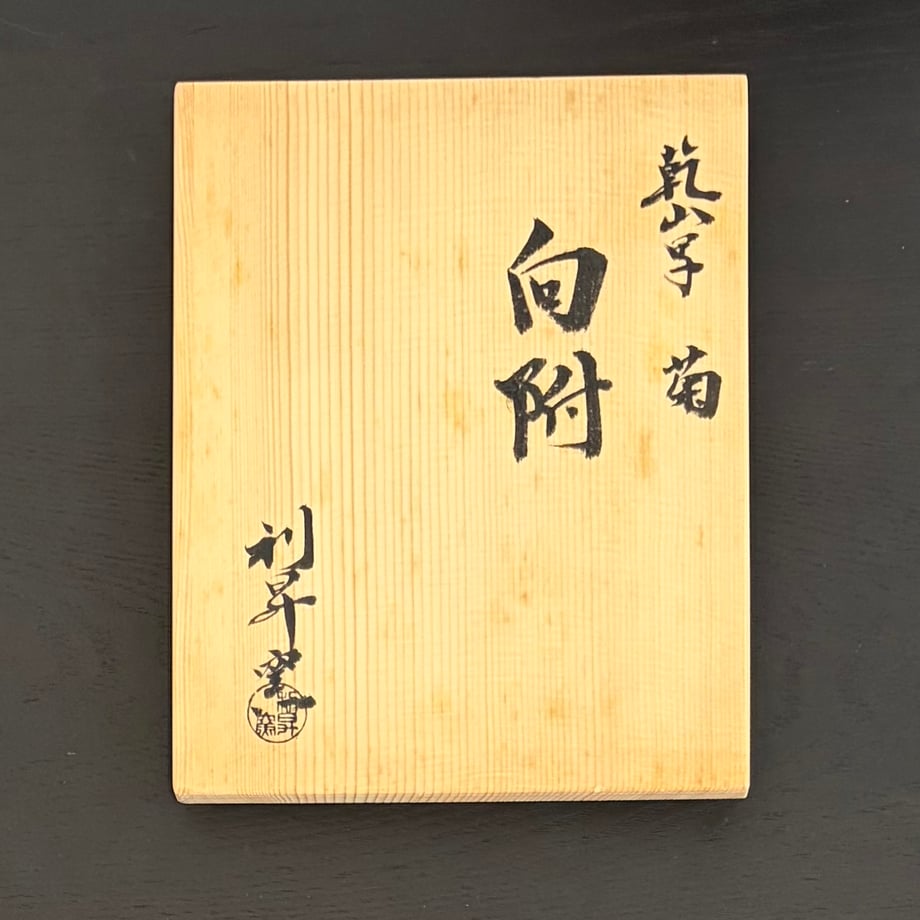 乾山写 菊
向附
利昇窯
利昇窯